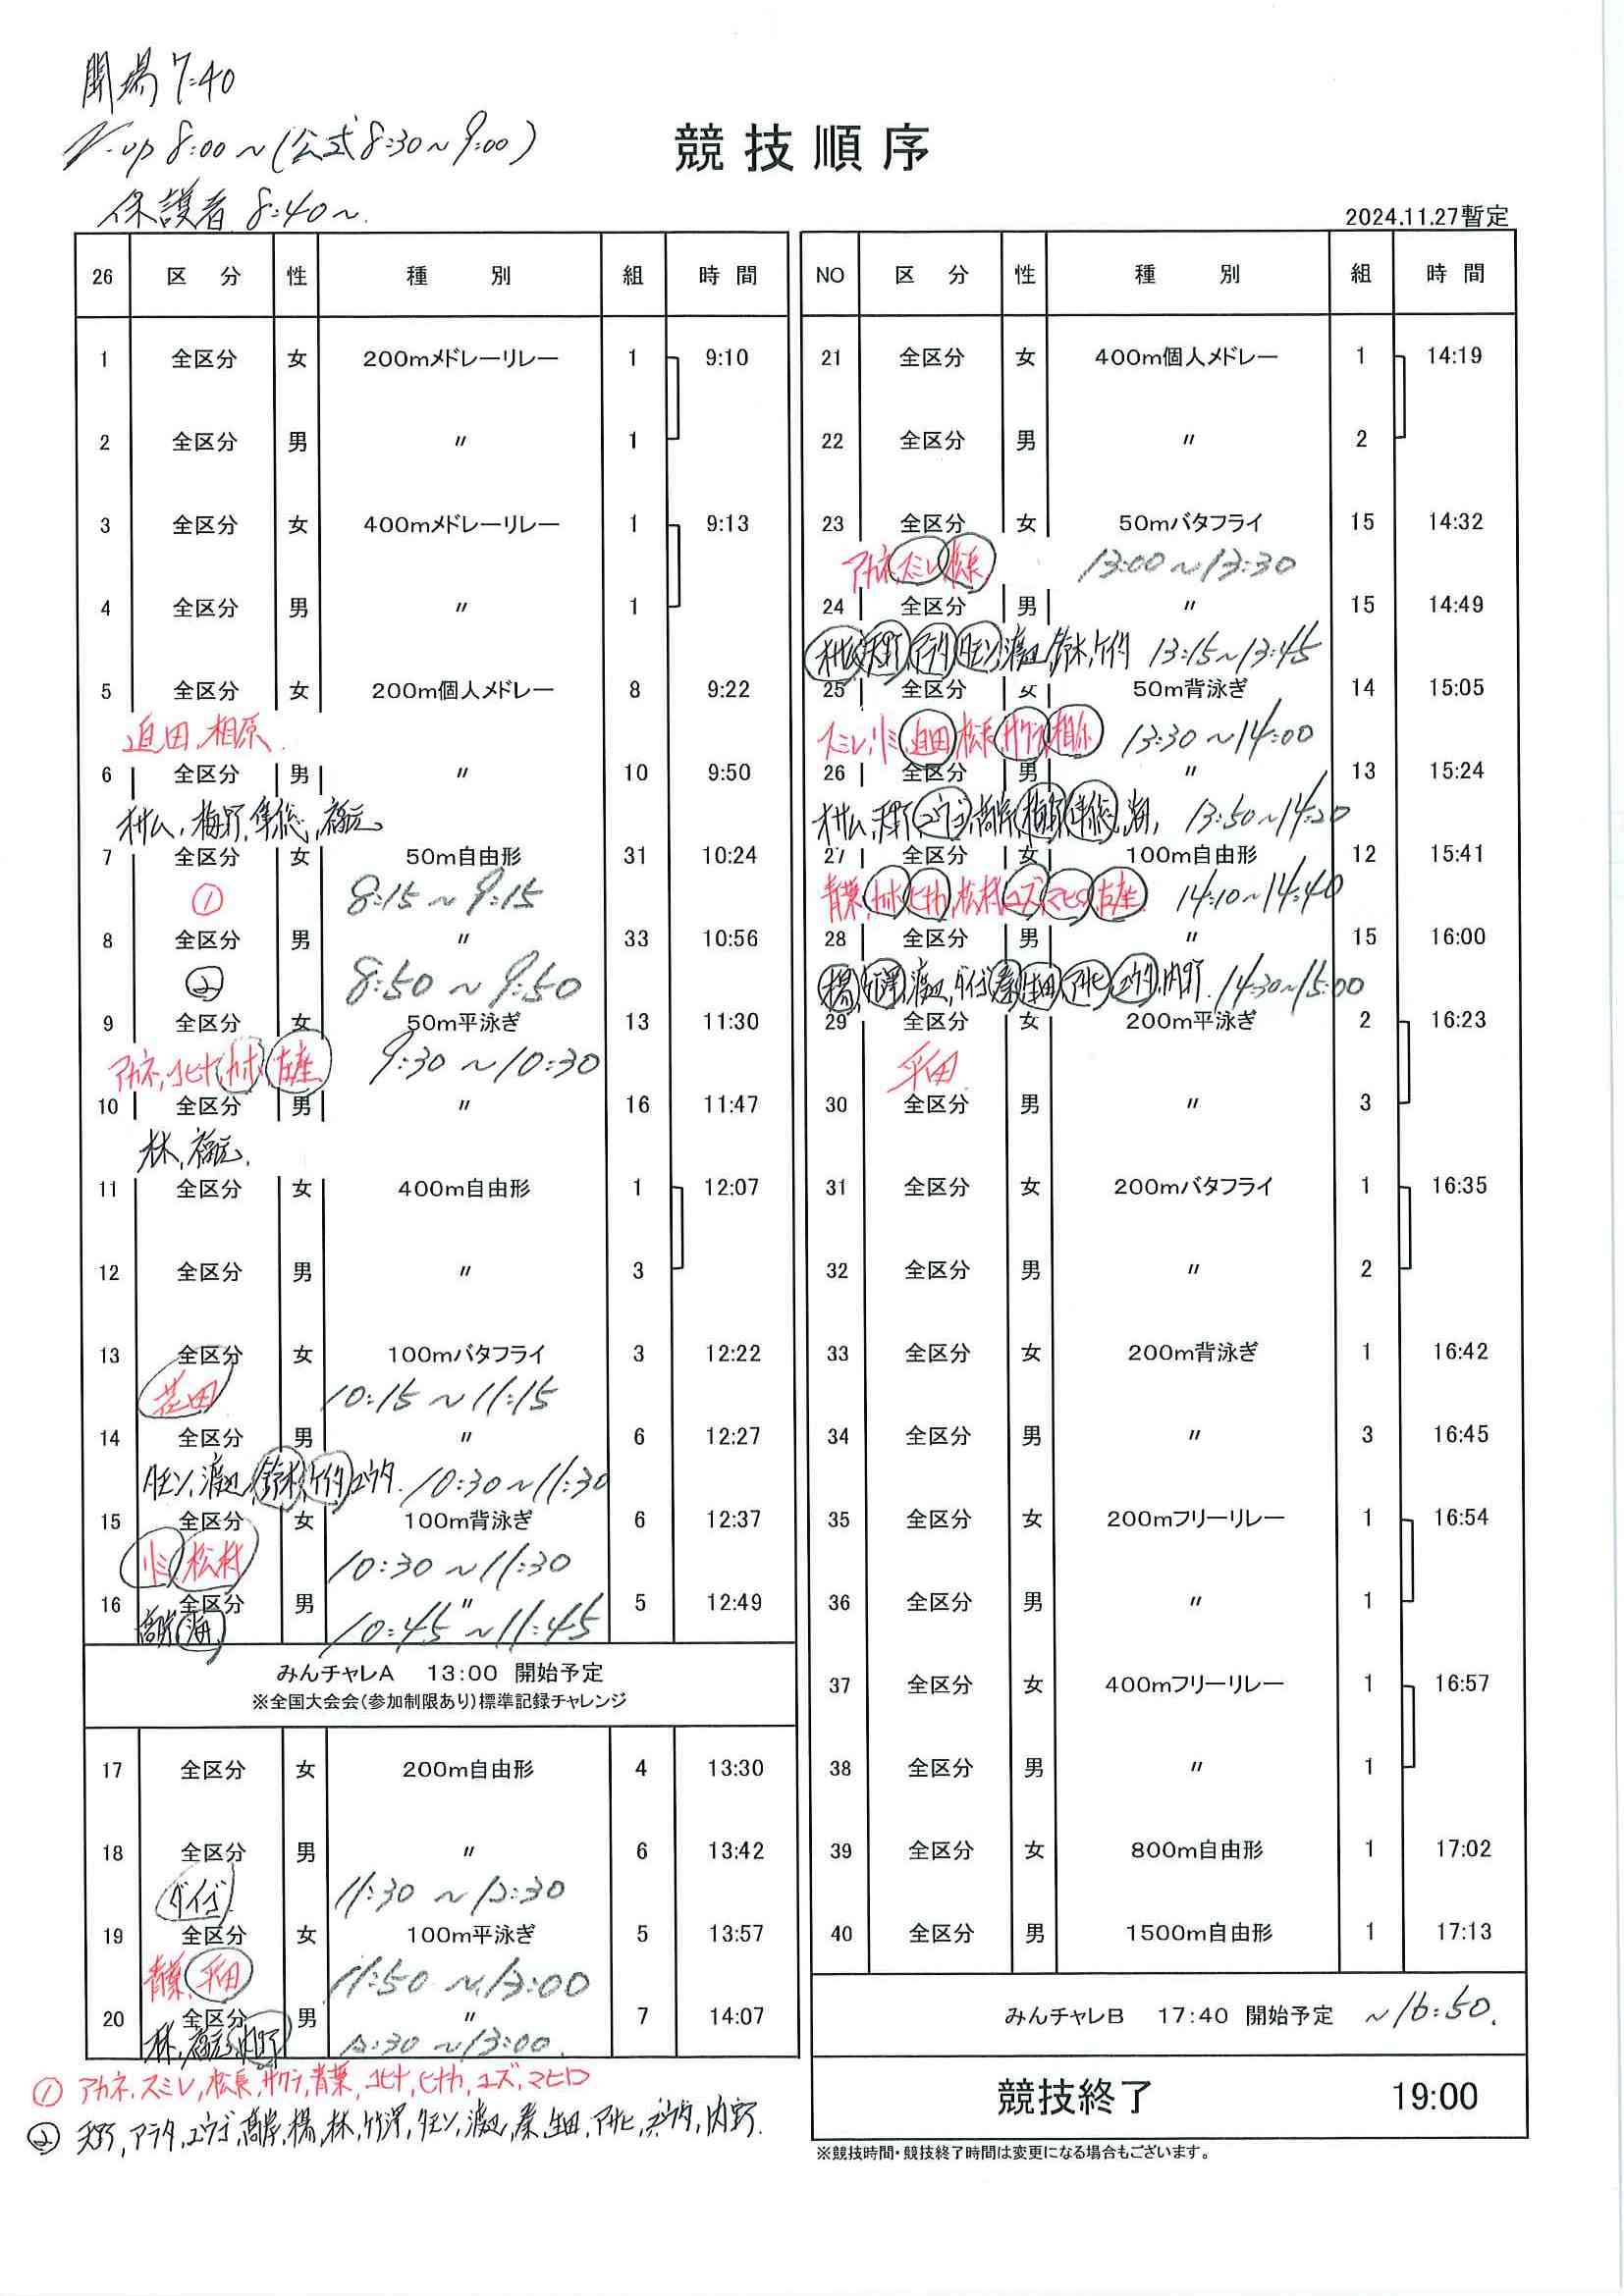 開場 7:40
W-up 8:00～(公式8:30～9:00)
保護者 8:40～
競技順序
2024.11.27暫定
26 区分 性 種別 組 時間
1 全区分 女 200mメドレーリレー 1 9:10
2 全区分 男 〃 1
3 全区分 女 400mメドレーリレー 1 9:13
4 全区分 男 〃 1
5 全区分 女 200m個人メドレー 8 9:22
迫田, 相原
6 全区分 男 〃 10 9:50
オサム, 梅野, 隼総, 福元
7 全区分 女 50m自由形 31 10:24
① 8:15～9:15
8 全区分 男 〃 33 10:56
② 8:50～9:50
9 全区分 女 50m平泳ぎ 13 11:30
アカネ, コヒナ, カホ, 左座 9:30～10:30
10 全区分 男 〃 16 11:47
林, 福元
11 全区分 女 400m自由形 1 12:07
12 全区分 男 〃 3
13 全区分 女 100mバタフライ 3 12:22
花田 10:15～11:15
14 全区分 男 〃 6 12:27
タモン, 渡辺, 鈴木, ケイタ, ユウタ 10:30～11:30
15 全区分 女 100m背泳ぎ 6 12:37
リミ, 松村 10:30～11:30
16 全区分 男 〃 5 12:49
高岸, 海 10:45～11:45
みんチャレA 13:00 開始予定
※全国大会会(参加制限あり)標準記録チャレンジ
17 全区分 女 200m自由形 4 13:30
18 全区分 男 〃 6 13:42
ダイゴ 11:30～12:30
19 全区分 女 100m平泳ぎ 5 13:57
青葉, 平田 11:50～13:00
20 全区分 男 〃 7 14:07
林, 福元, 内野 12:30～13:00
① アカネ, スミレ, 松長, サクラ, 青葉, コヒナ, ヒナカ, ユズ, マヒロ
② 天野, アラタ, ユウゴ, 高岸, 楊, 林, 竹澤, タモン, 渡辺, 秦, 生田, アサヒ, ユウタ, 内野
NO 区分 性 種別 組 時間
21 全区分 女 400m個人メドレー 1 14:19
22 全区分 男 〃 2
23 全区分 女 50mバタフライ 15 14:32
アカネ, スミレ, 松長 13:00～13:30
24 全区分 男 〃 15 14:49
オサム, 天野, アラタ, タモン, 渡辺, 鈴木, ケイタ 13:15～13:45
25 全区分 女 50m背泳ぎ 14 15:05
スミレ, リミ, 迫田, 松長, サクラ, 相原 13:30～14:00
26 全区分 男 〃 13 15:24
オサム, 天野, ユウゴ, 高岸, 梅野, 隼総, 海, 13:50～14:20
27 全区分 女 100m自由形 12 15:41
青葉, カホ, ヒナカ, 松村, ユズ, マヒロ, 左座 14:10～14:40
28 全区分 男 〃 15 16:00
楊, 竹澤, 渡辺, ダイゴ, 秦, 生田, アサヒ, ユウタ, 内野 14:30～15:00
29 全区分 女 200m平泳ぎ 2 16:23
平田
30 全区分 男 〃 3
31 全区分 女 200mバタフライ 1 16:35
32 全区分 男 〃 2
33 全区分 女 200m背泳ぎ 1 16:42
34 全区分 男 〃 3 16:45
35 全区分 女 200mフリーリレー 1 16:54
36 全区分 男 〃 1
37 全区分 女 400mフリーリレー 1 16:57
38 全区分 男 〃 1
39 全区分 女 800m自由形 1 17:02
40 全区分 男 1500m自由形 1 17:13
みんチャレB 17:40 開始予定 ～16:50.
競技終了 19:00
※競技時間・競技終了時間は変更になる場合もございます。